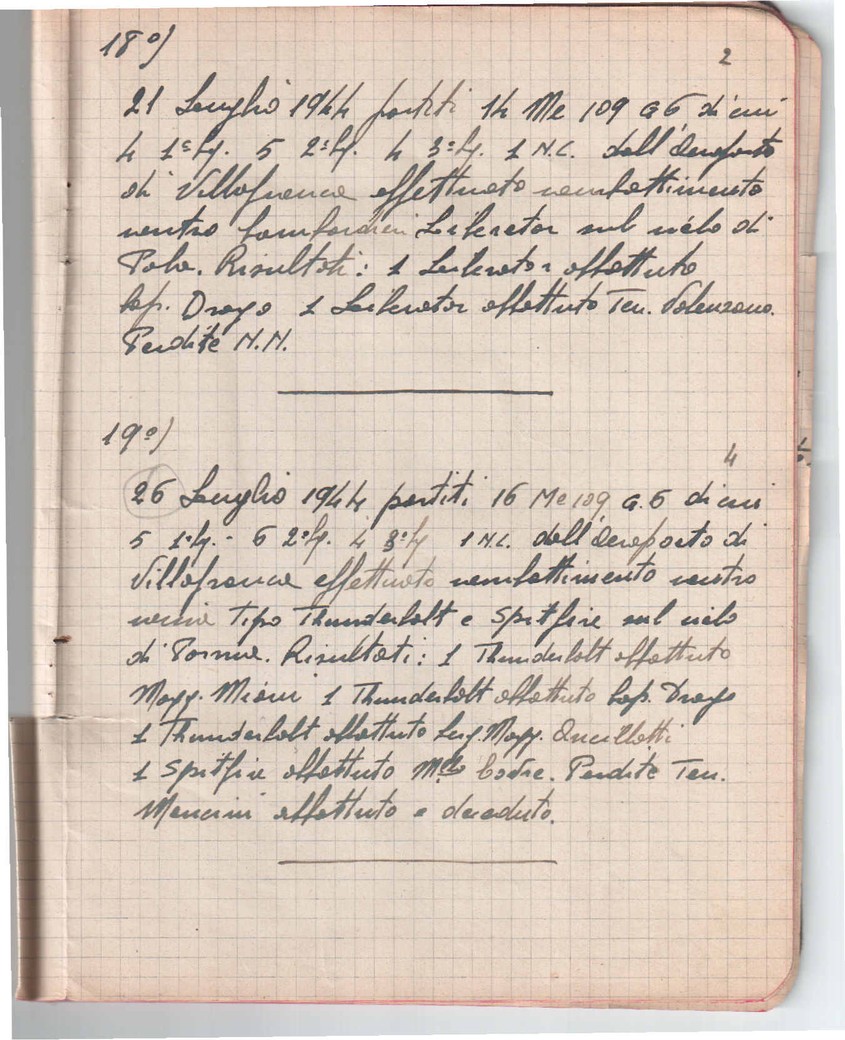 18°)
2
21 Luglio 1944 partiti 14 Me 109 G 6 di cui
4 1ª Sq. 5 2ª Sq. 4 3ª Sq. 1 N.C. dall'Aeroporto
di Villafranca effettuato combattimento
contro bombardieri Liberator sul cielo di
Pola. Risultati: 1 Liberator abbattuto
Cap. Drago 1 Liberator abbattuto Ten. Valenzano.
Perdite N.N.
19°)
4
26 Luglio 1944 partiti 16 Me 109 G. 6 di cui
5 1ª Sq. - 6 2ª Sq. 4 3ª Sq 1 N.C. dall'Aeroporto di
Villafranca effettuato combattimento contro
caccia tipo Thunderbolt e Spitfire sul cielo
di Parma. Risultati: 1 Thunderbolt abbattuto
Magg. Miani 1 Thunderbolt abbattuto Cap. Drago
1 Thunderbolt abbattuto Serg. Magg. Ancillotti
1 Spitfire abbattuto M.llo Perdite Ten.
Mancini abbattuto e deceduto.